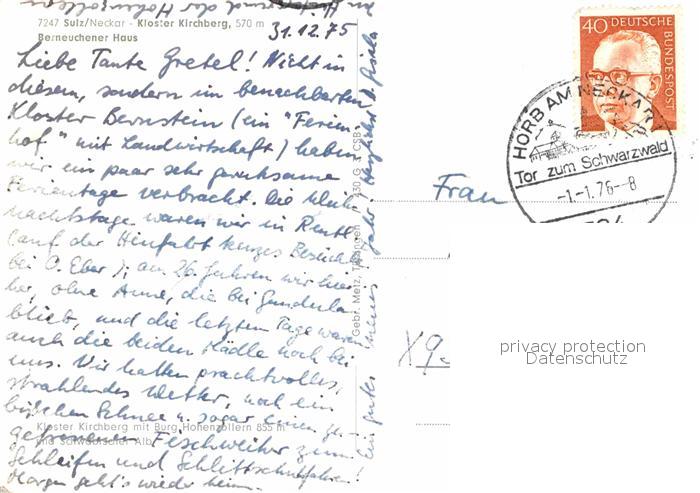 7247 Sulz/Neckar - Kloster Kirchberg, 570 m
Berneuchener Haus
31.12.75
Liebe Tante Gretel! Nicht in
diesem, sondern im benachbarten
Kloster Bernstein (ein "Ferien-
hof" mit Landwirtschaft) haben
wir ein paar sehr geruhsame
Ferientage verbracht. Die Weih-
nachtstage waren wir in Reutl.
(auf der Hinfahrt kurzes Besuch
bei O. Eber); am 26. fuhren wir hier-
her, ohne Anne, die bei Gundula
blieb, und die letzten Tage waren
auch die beiden Mädle noch bei
uns. Wir hatten prachtvolles,
strahlendes Wetter, noch ein
bißchen Schnee u. sogar einen zu-
Kloster Kirchberg mit Burg Hohenzollern 855 m
gefrorenen Fischweiher zum
und Schwäbischer Alb
Schleifen und Schlittschuhfahren!
Morgen geht's wieder heim.
Ein gutes neues Jahr! Herzlichst
Gebr. Metz, Tübingen
CSB
40 DEUTSCHE BUNDESPOST
HORB AM NECKAR
Tor zum Schwarzwald
-1.-1.76-8
Frau
X9.
privacy protection
Datenschutz